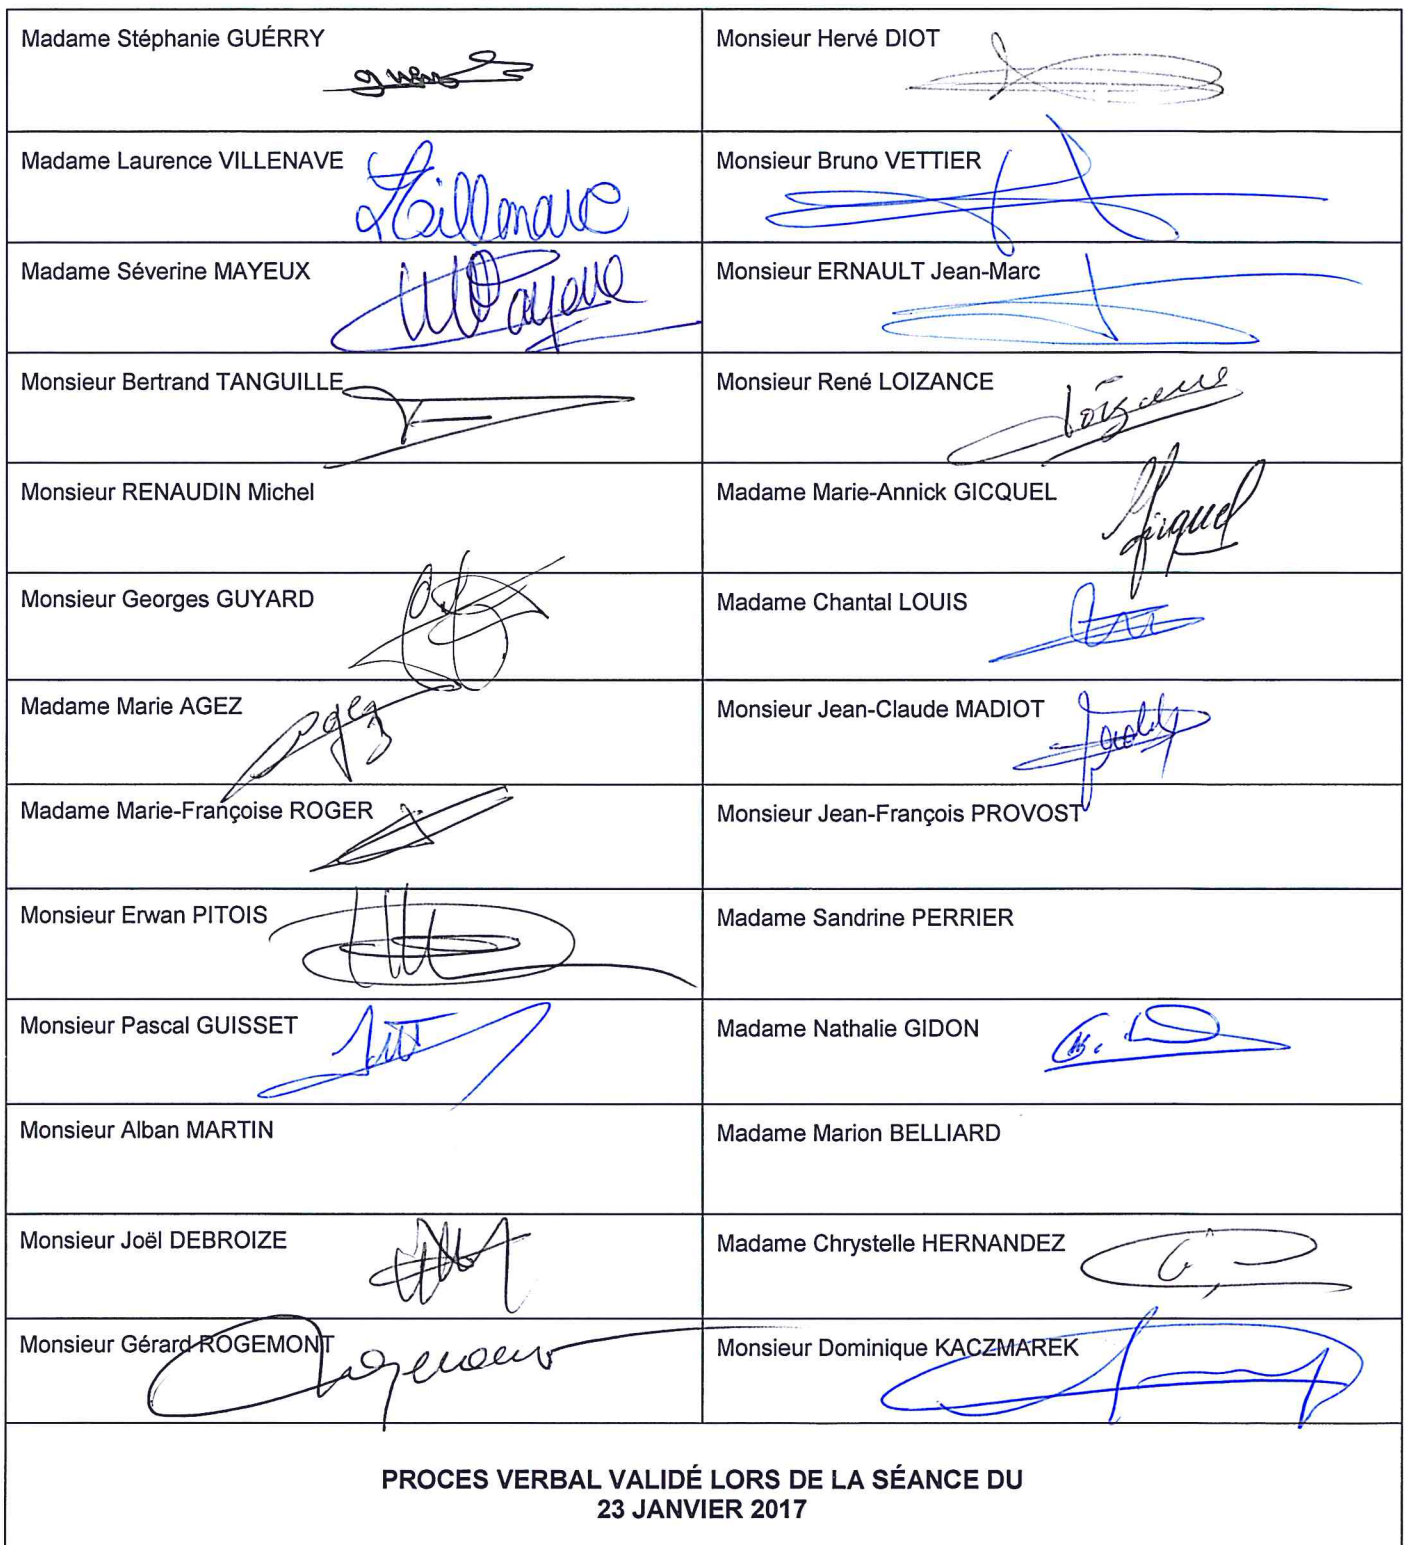 Madame Stéphanie GUÉRRY
Monsieur Hervé DIOT
Madame Laurence VILLENAVE
Monsieur Bruno VETTIER
Madame Séverine MAYEUX
Monsieur ERNAULT Jean-Marc
Monsieur Bertrand TANGUILLE
Monsieur René LOIZANCE
Monsieur RENAUDIN Michel
Madame Marie-Annick GICQUEL
Monsieur Georges GUYARD
Madame Chantal LOUIS
Madame Marie AGEZ
Monsieur Jean-Claude MADIOT
Madame Marie-Françoise ROGER
Monsieur Jean-François PROVOST
Monsieur Erwan PITOIS
Madame Sandrine PERRIER
Monsieur Pascal GUISSET
Madame Nathalie GIDON
Monsieur Alban MARTIN
Madame Marion BELLIARD
Monsieur Joël DEBROIZE
Madame Chrystelle HERNANDEZ
Monsieur Gérard ROGEMONT
Monsieur Dominique KACZMAREK
PROCES VERBAL VALIDÉ LORS DE LA SÉANCE DU
23 JANVIER 2017